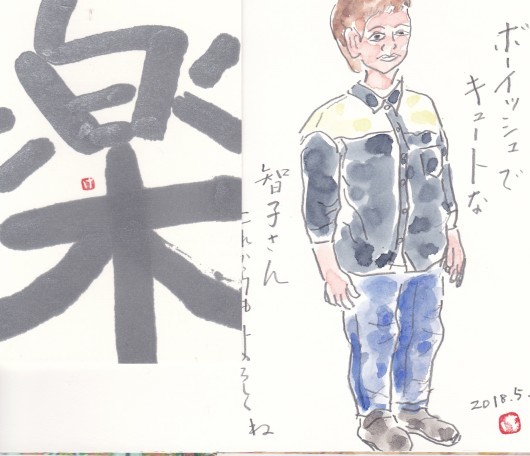 ボーイッシュで
キュートな
智子さん
これからもよろしくね
2018.5.
楽